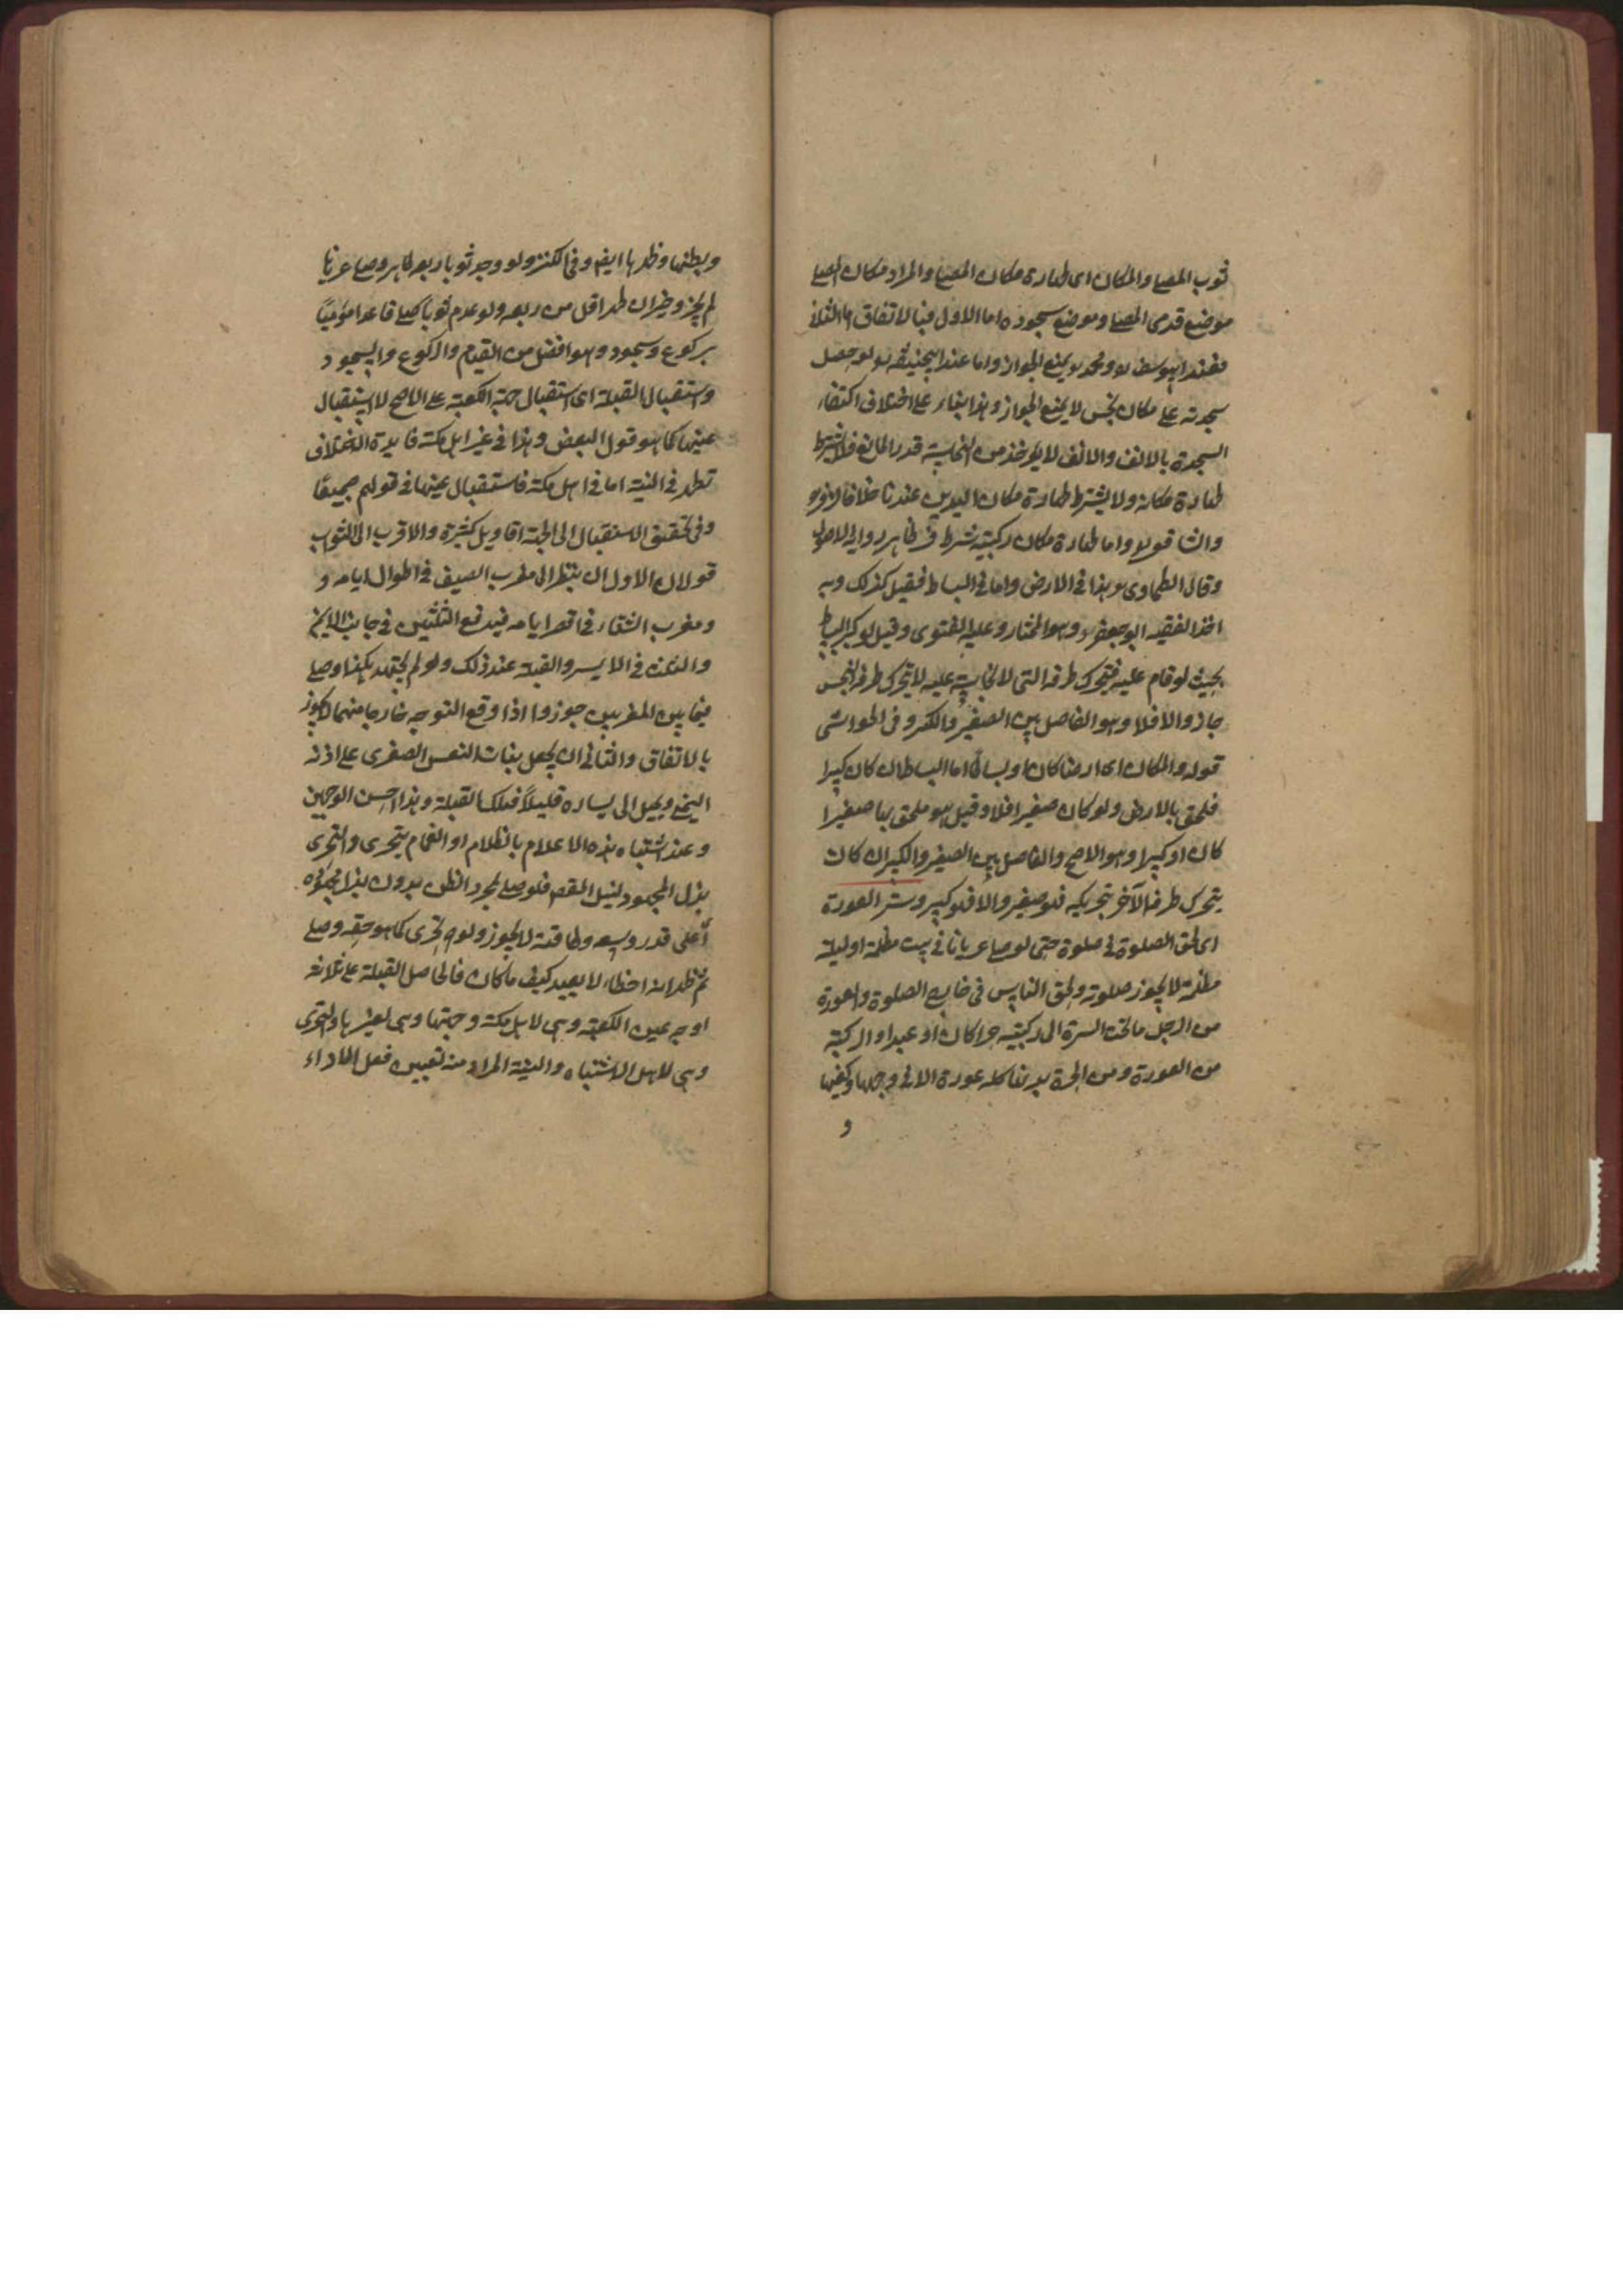 ثوب المصلي والمكان اى طهارة مكان المصلي والمراد مكان المصلي
موضع قدمى المصلي وموضع سجوده اما الاول فبالاتفاق اما الثانى
فعند ابيوسف ومحمد يمنع الجواز واما عند ابيحنيفة لو حصل
سجدته على مكان نجس لا يمنع الجواز وهذا بناء على اختلاف اكتفاء
السجدة بالانف والانف لا يأخذ من النجاسة قدر المانع فلا يشترط
طهارة مكانه ولا يشترط طهارة مكان اليدين عندنا خلافا لزفر
والشافعى واما طهارة مكان ركبتيه شرط فى ظاهر رواية الاصول
وقال الطحاوى هذا فى الارض واما فى البساط فقيل كذلك وبه
اخذ الفقيه ابو جعفر وهو المختار وعليه الفتوى وقيل لو كبر البساط
بحيث لو قام عليه فتحرك طرفه التى لا نجاسة عليه لا يتحرك طرفه النجس
جاز والا فلا وهو الفاصل بين الصغير والكبر وفى الحواشى
قوله والمكان اى ارضا كان او بساطا اما البساط ان كان كبيرا
فملحق بالارض ولو كان صغيرا فلا وقيل هو ملحق بها صغيرا
كان او كبيرا وهو الاصح والفاصل بين الصغير والكبير ان كان
يتحرك طرفه الآخر بتحريكه فهو صغير والا فهو كبير وستر العورة
اى لحق الصلوة فى صلوة حتى لو صلي عريانا فى بيت مظلمة او ليلة
مظلمة لا يجوز صلوته ولحق الناس فى خارج الصلوة والعورة
من الرجل ما تحت السرة الى ركبتيه حرا كان او عبدا والركبة
من العورة ومن الحرة بدنها كله عورة الا فى وجهها وكفيها
و
وبطنها وظهرها ايض وفى الكنز ولو وجد ثوبا ربعه طاهر وصلي عريانا
لم يجز وخير ان طهر اقل من ربعه ولو عدم ثوبا صلي قاعدا موميًا
بركوع وسجود وهو افضل من القيام والركوع والسجود
واستقبال القبلة اى استقبال جهة الكعبة على الاصح لا استقبال
عينها كما هو قول البعض وهذا فى غير اهل مكة فايدة الاختلاف
تظهر فى النية اما فى اهل مكة فاستقبال عينها فى قولهم جميعًا
وفى تحقيق الاستقبال الى الجهة اقاويل كثيرة والاقرب الى الثواب
قولان الاول ان ينظر الى مغرب الصيف فى اطوال ايامه و
ومغرب الشتاء فى اقصر ايامه فيدفع الثلثين فى جانب الايمن
والثلث فى الايسر والقبلة عند ذلك ولو لم يجتهد هكذا وصلي
فيما بين المغربين جوزوا اذا وقع التوجه خارجا منهما لا يجوز
بالاتفاق والثانى ان يجعل بنات النعس الصغرى على اذنه
اليمنى ويميل الى يساره قليلاً فتلك القبلة وهذا احسن الوجهين
وعند اشتباه هذه الاعلام بالظلام او الغمام يتحرى والتحرى
بذل المجهود لنيل المقصد فلو صلي بمجرد الظن بدون بذل مجهوده
أعلى قدر وسعه وطاقته لا يجوز ولو تحرى كما هو حقه وصلي
ثم ظهر انه اخطاء لا يعيد كيف ما كان فالحاصل القبلة على ثلاثة
اوجه عين الكعبة وهى لاهل مكة وجهتها وهى لغيرها والتحرى
وهى لاهل الاشتباه والنية المراد منه تعيين فعل الاداء